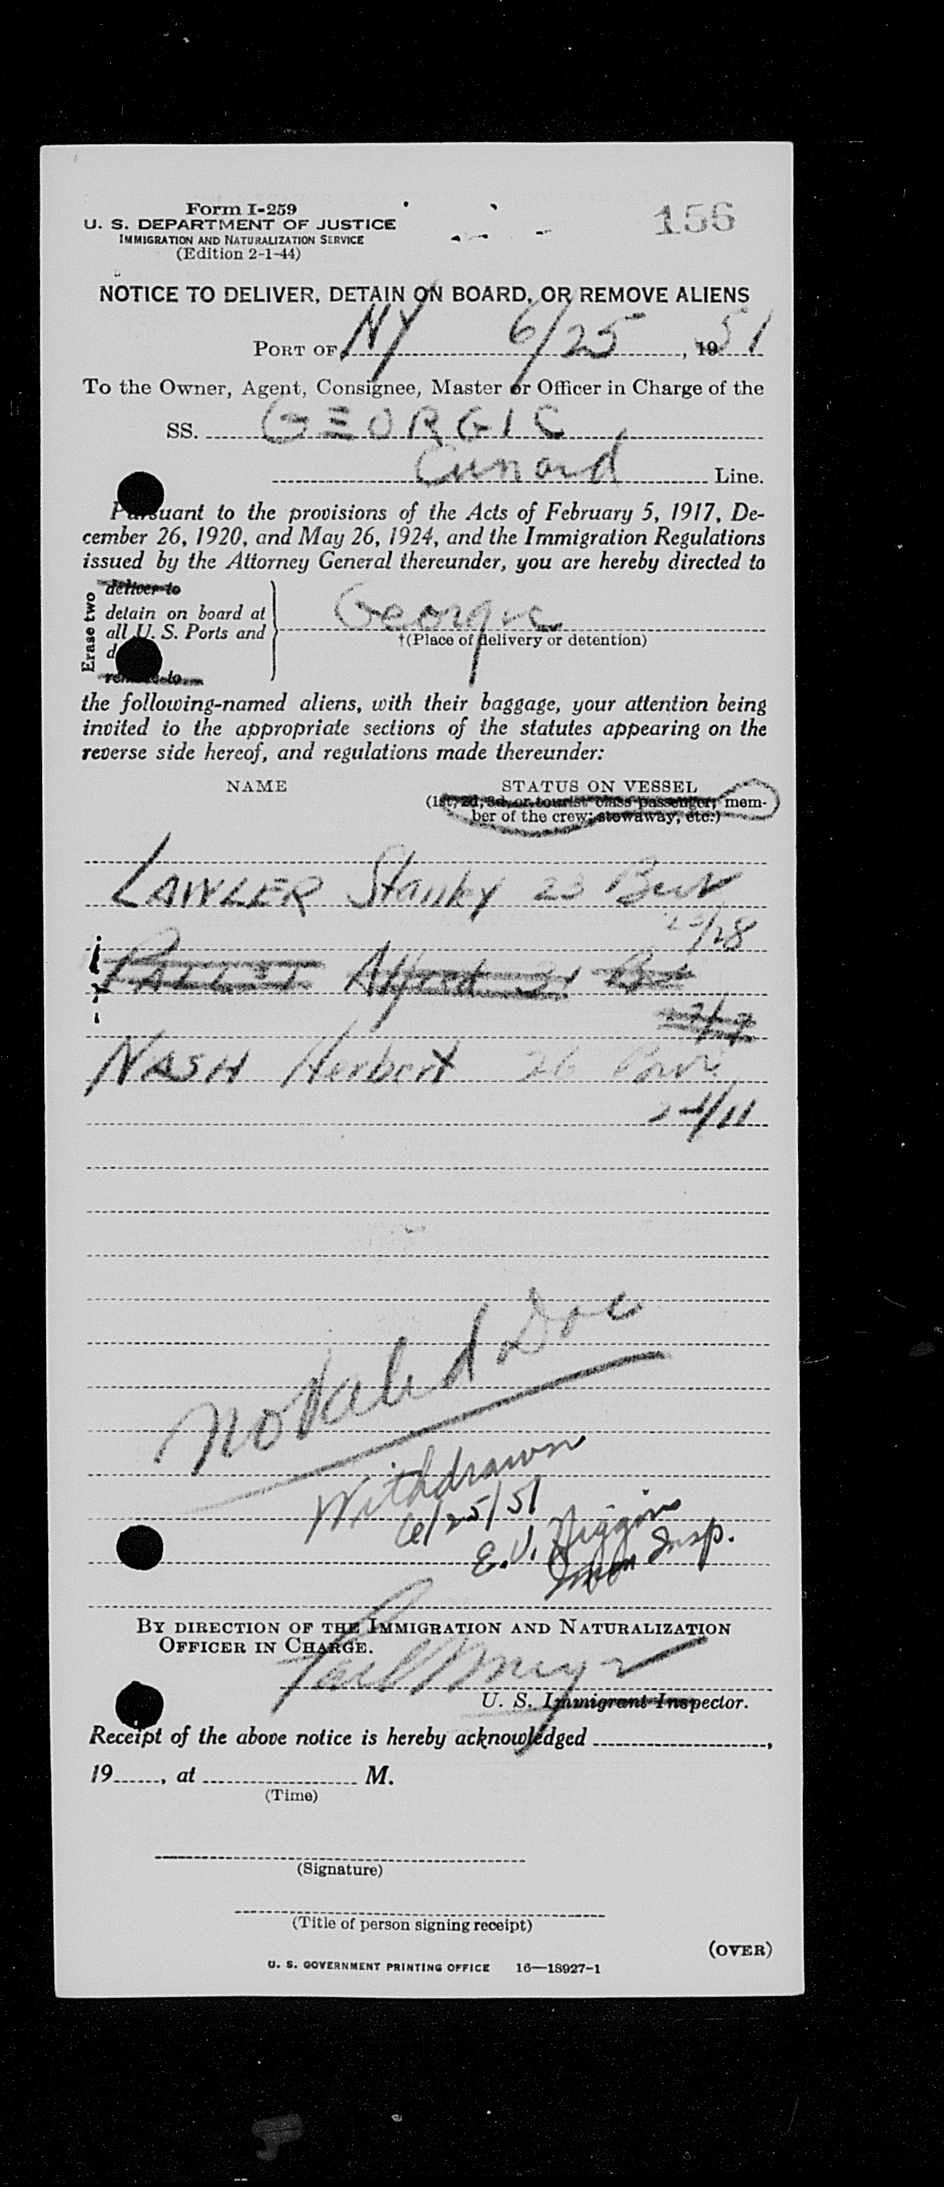 Form I-259
156
U. S. DEPARTMENT OF JUSTICE
IMMIGRATION AND NATURALIZATION SERVICE
(Edition 2-1-44)
NOTICE TO DELIVER, DETAIN ON BOARD, OR REMOVE ALIENS
PORT OF NY 6/25, 1951
To the Owner, Agent, Consignee, Master or Officer in Charge of the
SS. GEORGIC
Cunard Line.
Pursuant to the provisions of the Acts of February 5, 1917, De-
cember 26, 1920, and May 26, 1924, and the Immigration Regulations
issued by the Attorney General thereunder, you are hereby directed to
Erase two
deliver to
detain on board at
all U. S. Ports and
remove to
Georgic
†(Place of delivery or detention)
the following-named aliens, with their baggage, your attention being
invited to the appropriate sections of the statutes appearing on the
reverse side hereof, and regulations made thereunder:
NAME STATUS ON VESSEL
(1st, 2d, 3d, or tourist class passenger, mem-
ber of the crew, stowaway, etc.)
LAWLER Stanley 23 Brit
/28
Alfred 31
NASH Herbert 26
/11
no Valid Doc
Withdrawn
6/25/51
E. J. Higgins
Imm Insp.
BY DIRECTION OF THE IMMIGRATION AND NATURALIZATION
OFFICER IN CHARGE.
U. S. Immigrant Inspector.
Receipt of the above notice is hereby acknowledged ,
19 , at M.
(Time)
(Signature)
(Title of person signing receipt)
(OVER)
U. S. GOVERNMENT PRINTING OFFICE 16—18927-1